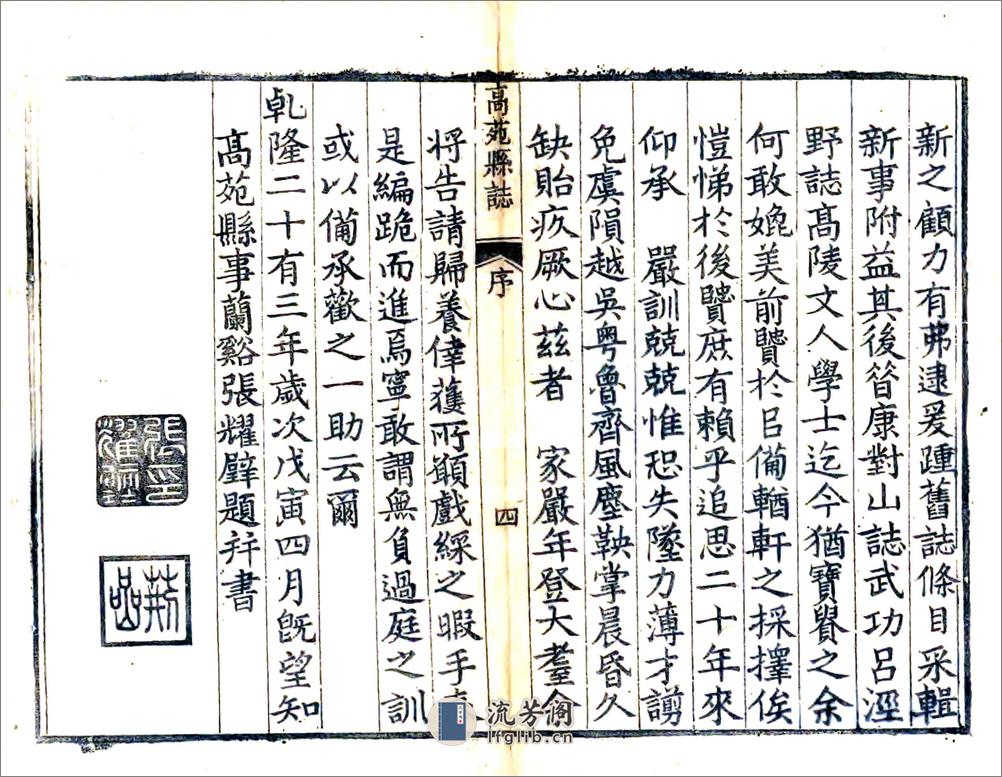 新之顧力有弗逮爰踵舊誌條目采輯
新事附益其後昔康對山誌武功呂涇
野誌高陵文人學士迄今猶寶貴之余
何敢媲美前贒於㠯備輶軒之採擇俟
愷悌於後贒庶有賴乎追思二十年來
仰承　嚴訓兢兢惟恐失墜力薄才譾
免虞隕越吳粤魯齊風塵鞅掌晨昏久
缺貽疚厥心茲者　家嚴年登大耋余
高苑縣誌　序　四
將告請歸養倖獲所願戲綵之暇手
是編跪而進焉寧敢謂無負過庭之訓
或以備承歡之一助云爾
乹隆二十有三年歲次戊寅四月既望知
高苑縣事蘭谿張耀璧題并書
張耀璧印
流芳阁
lfglib.cn